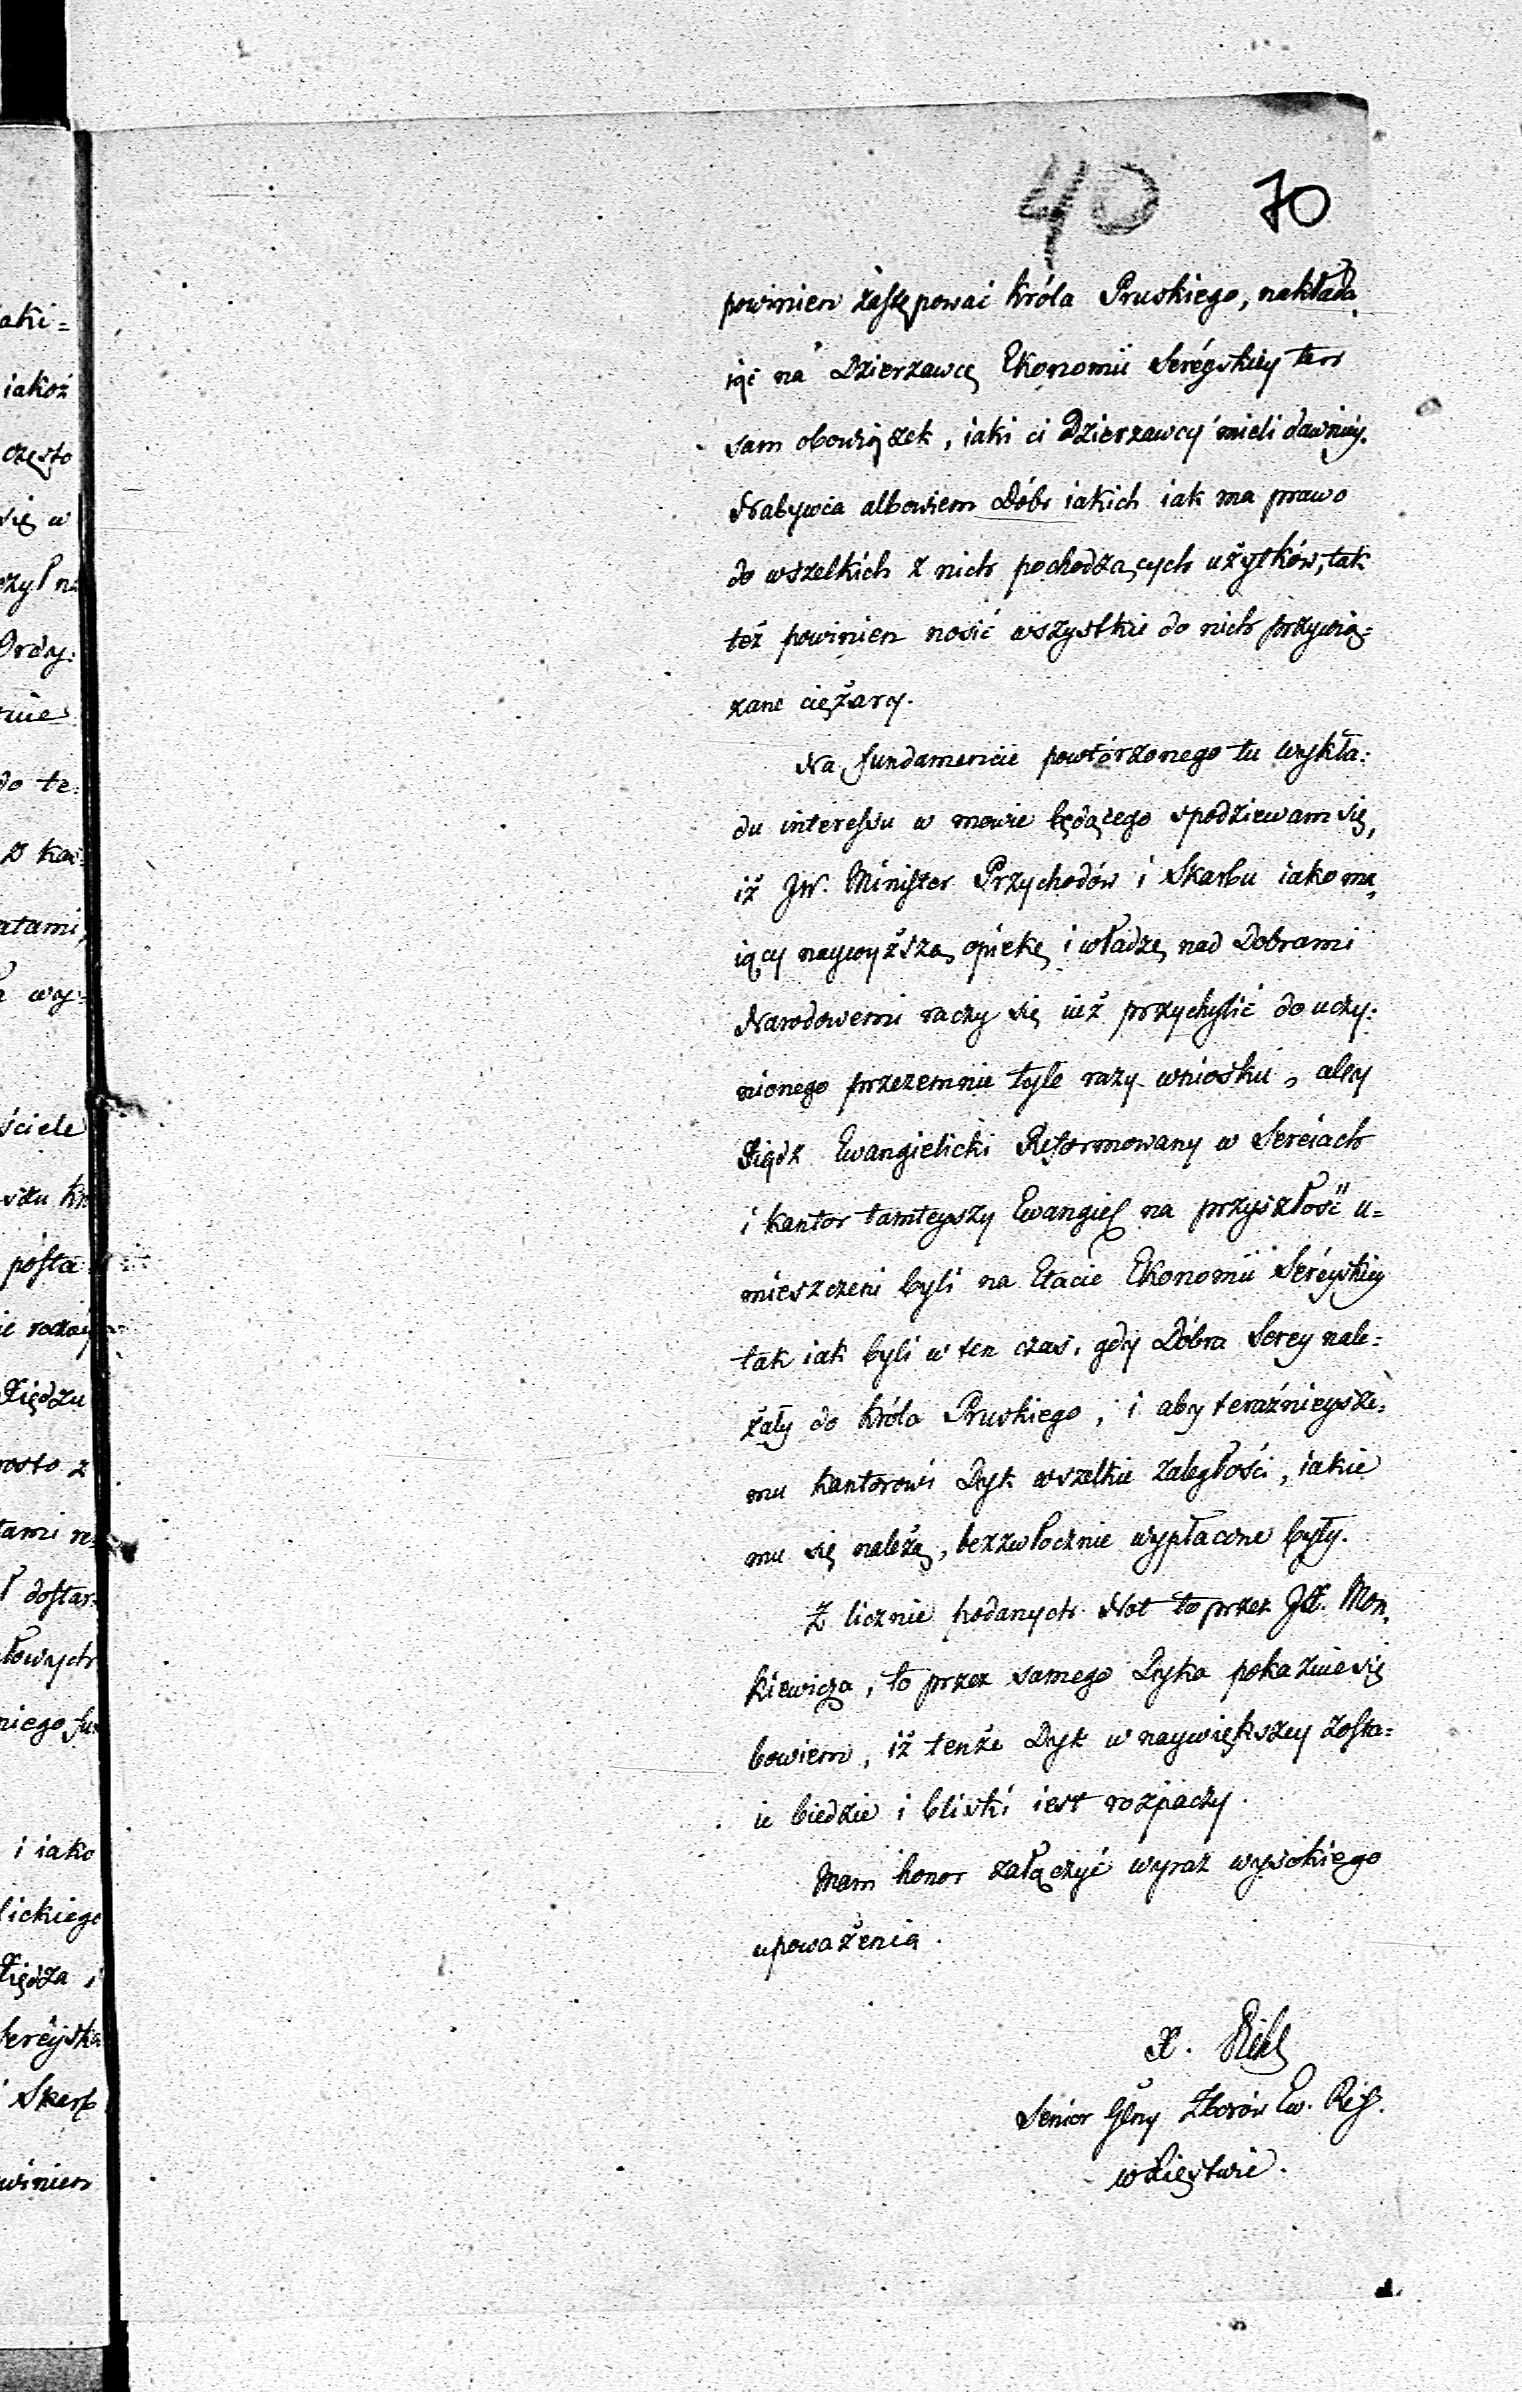 40 70
aki=
iakoż
często
się w
Ordy:
do te=
z ka=
atami,
wy=
ściele
pofta
Xiędzu
rosto z
tami
doftar=
łowych
niego
i iako
lickiego
Xiędza i
Seréyska
Skarb
winien
powinien zaftępować Króla Pruskiego, nakłada
iąc na Dzierzawcę Ekonomii Seréyskiey ten
sam obowiązek, iaki ci Dzierzawcy mieli dawniey.
Nabywca albowiem Dóbr iakich iak ma prawo
do wszelkich z nich pochodzących użytków, tak
też powinien nosić wszystkie do nich przywią=
zane ciężary.
Na fundamencie powtórzonego tu wykła=
du interefsu w mowie będącego spodziewam się,
iż JW. Minifter Przychodów i Skarbu iako ma
iący naywyższą opiekę i władzę nad Dobrami
Narodowemi raczy się iuż przychylić do uczy=
nionego przezemnie tyle razy wniosku, aby
Xiądz Ewangielicki Reformowany w Sereiach
i Kantor tamteyszy Ewangiel na przyszłość u=
mieszczeni byli na Etacie Ekonomii Seréyskiey
tak iak byli w ten czas, gdy Dobra Serey nale=
żały do Króla Pruskiego, i aby teraźnieysze=
mu Kantorowi Dyk wszelkie zaległości, iakie
mu się należą, bezzwłocznie wypłacone były.
Z licznie podanych Not to przez JX. Mon
kiewicza, to przez samego Dyka pokazuie się
bowiem, iż tenże Dyk w naywiększey zofta=
ie biedzie i bliski iest rozpaczy.
Mam honor załączyć wyraz wysokiego
upoważenia.
X. Diehl
Senior Głny Zborów Ew. Ref.
w Xięstwie.